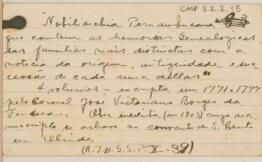 CMP 2.2.2.15
"Nobiliarchia Pernambucana
que contem as memorias Genealogicas
das familias mais distinctas com a
noticia da origem, antiguidade e suc
cessão de cada uma dellas"
4 volumes - escripta em 1771 a 1777
pelo Coronel José Victoriano Borges da
Fonseca. Obra inedita (em 1903) cujo ma
nuscripto se achava no convento de S. Bento
em Olinda.